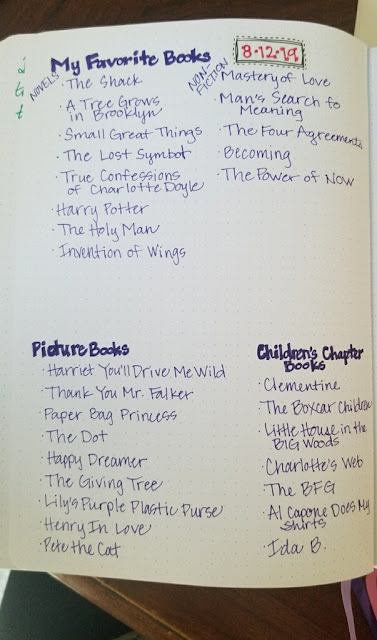 My Favorite Books
8-12-19
NOVELS
· The Shack
· A Tree Grows
in Brooklyn
· Small Great Things
· The Lost Symbol
· True Confessions
of Charlotte Doyle
· Harry Potter
· The Holy Man
· Invention of Wings
NON-
FICTION
· Mastery of Love
· Man's Search to
Meaning
· The Four Agreements
· Becoming
· The Power of Now
Picture Books
· Harriet You'll Drive Me Wild
· Thank You Mr. Falker
· Paper Bag Princess
· The Dot
· Happy Dreamer
· The Giving Tree
· Lily's Purple Plastic Purse
· Henry In Love
· Pete the Cat
Children's Chapter
Books
· Clementine
· The Boxcar Children
· Little House in the
BIG Woods
· Charlotte's Web
· The BFG
· Al Capone Does My
Shirts
· Ida B.